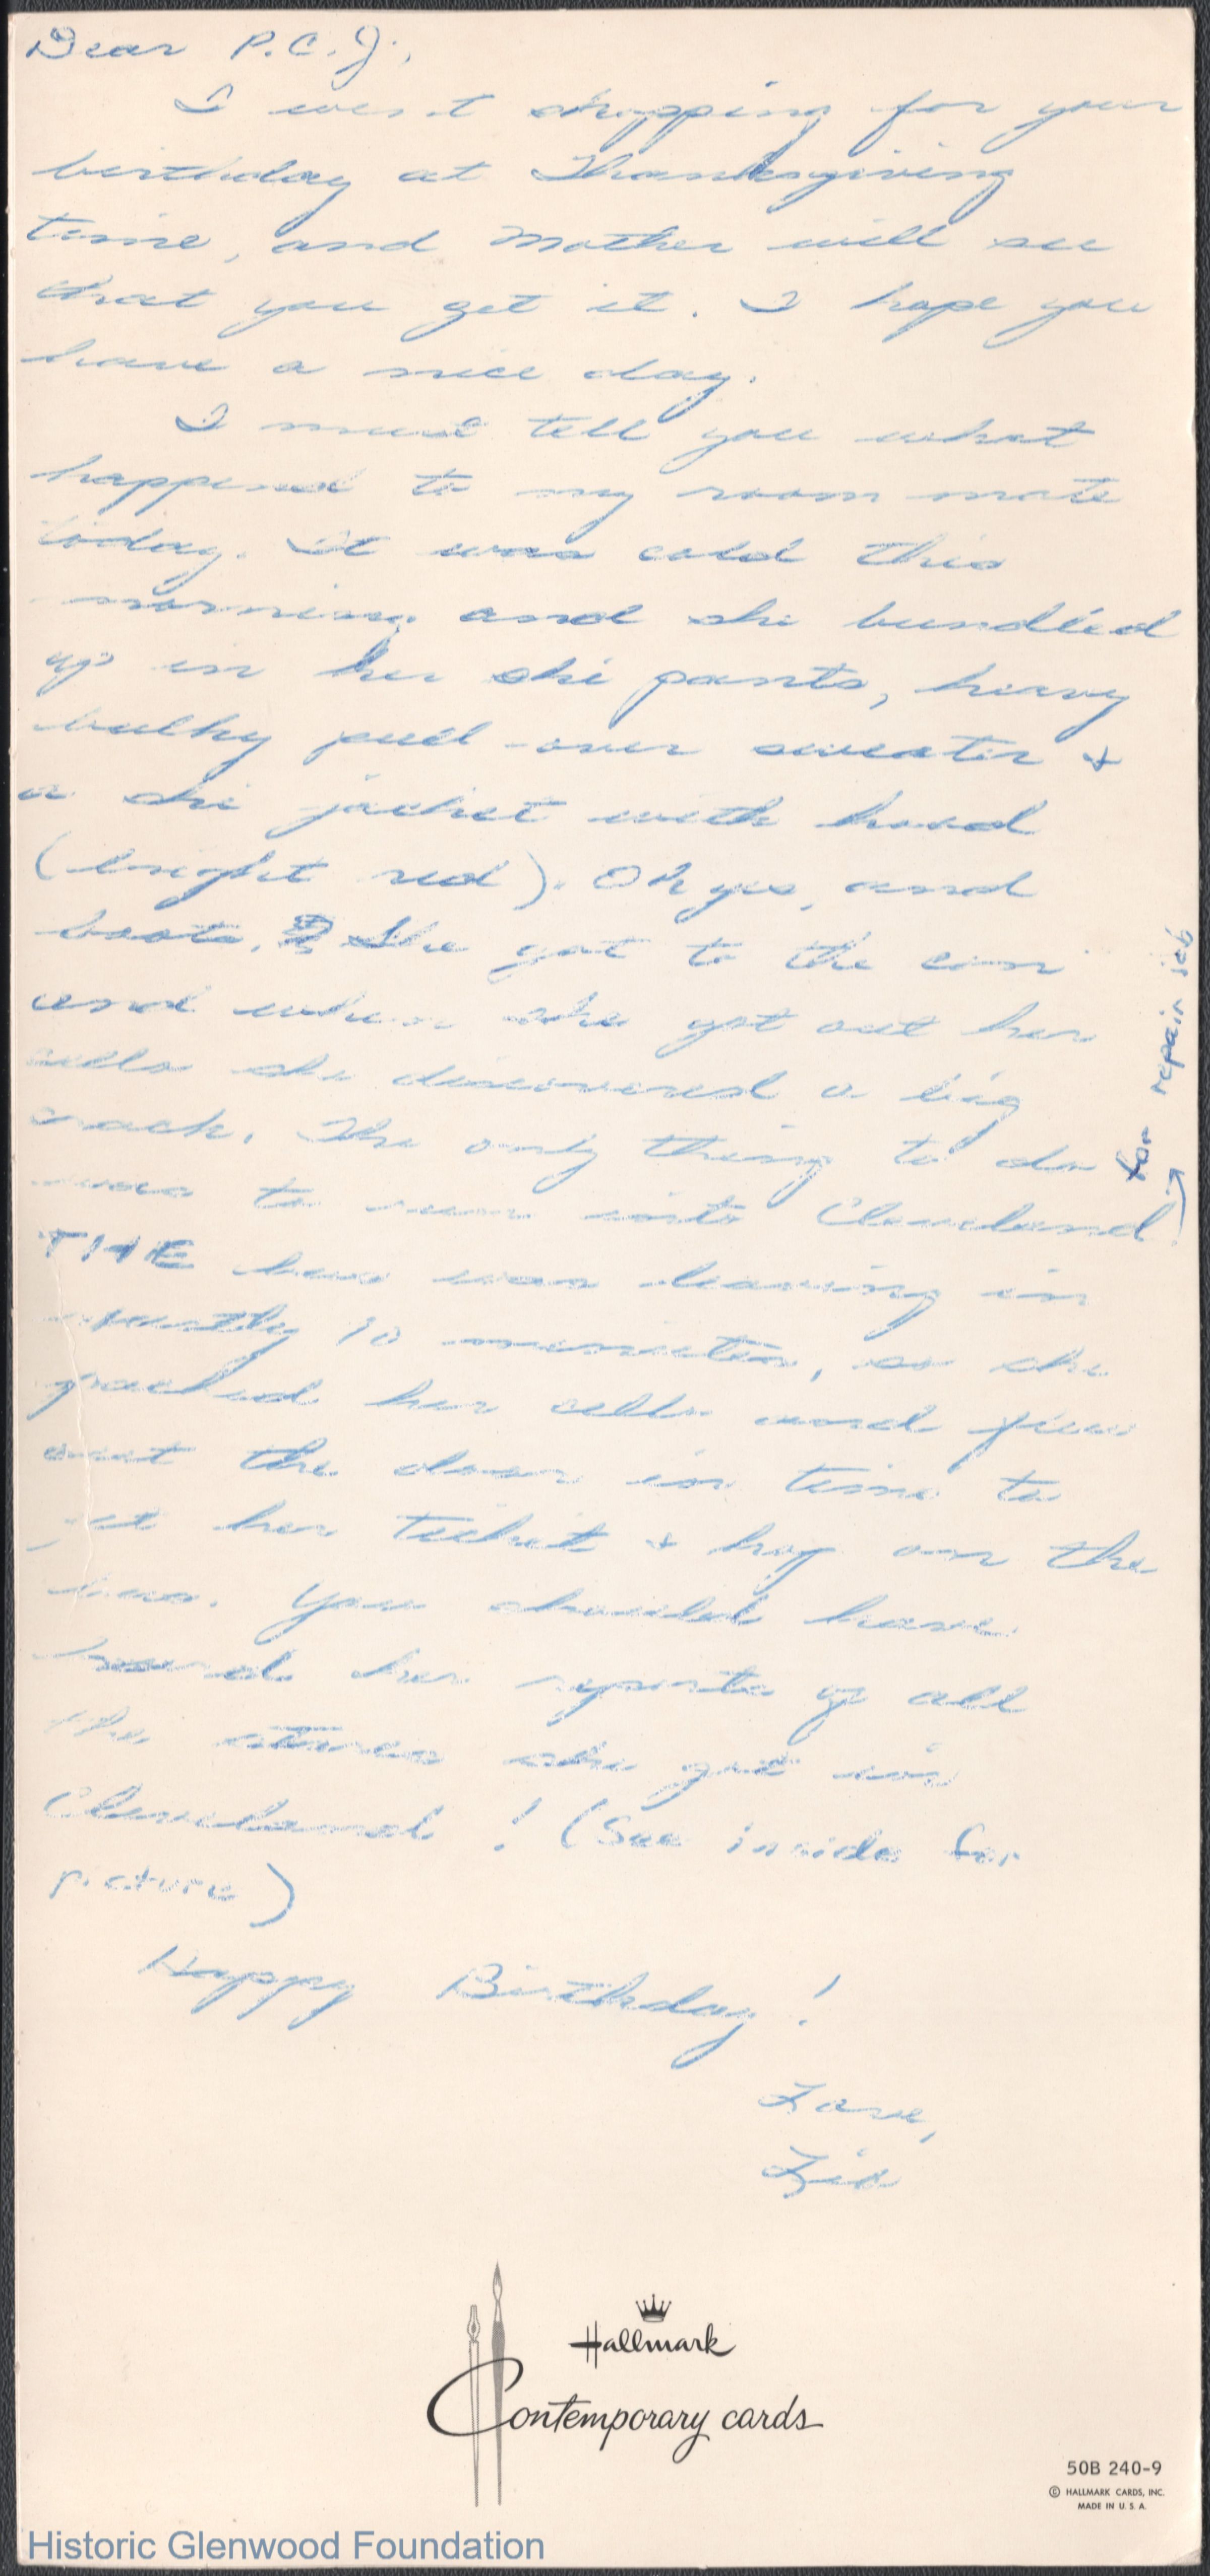 Dear P.C.J.,
I went shopping for your
birthday at Thanksgiving
time, and Mother will see
that you get it. I hope you
have a nice day.
I must tell you what
happened to my room mate
today. It was cold this
morning and she bundled
up in her ski pants, heavy
bulky pull-over sweater +
a ski jacket with hood
(bright red). Oh yes, and
boots. She got to the con
and when she got out her
cello she discovered a big
crack. The only thing to do
was to run into Cleveland
for repair job
THE bus was leaving in
exactly 10 minutes, so she
packed her cello and flew
out the door in time to
get her ticket + hop on the
bus. You should have
heard her reports of all
the stares she got in
Cleveland! (See inside for
picture)
Happy Birthday!
Love,
Liz
Hallmark
Contemporary cards
50B 240-9
© HALLMARK CARDS, INC.
MADE IN U.S.A.
Historic Glenwood Foundation